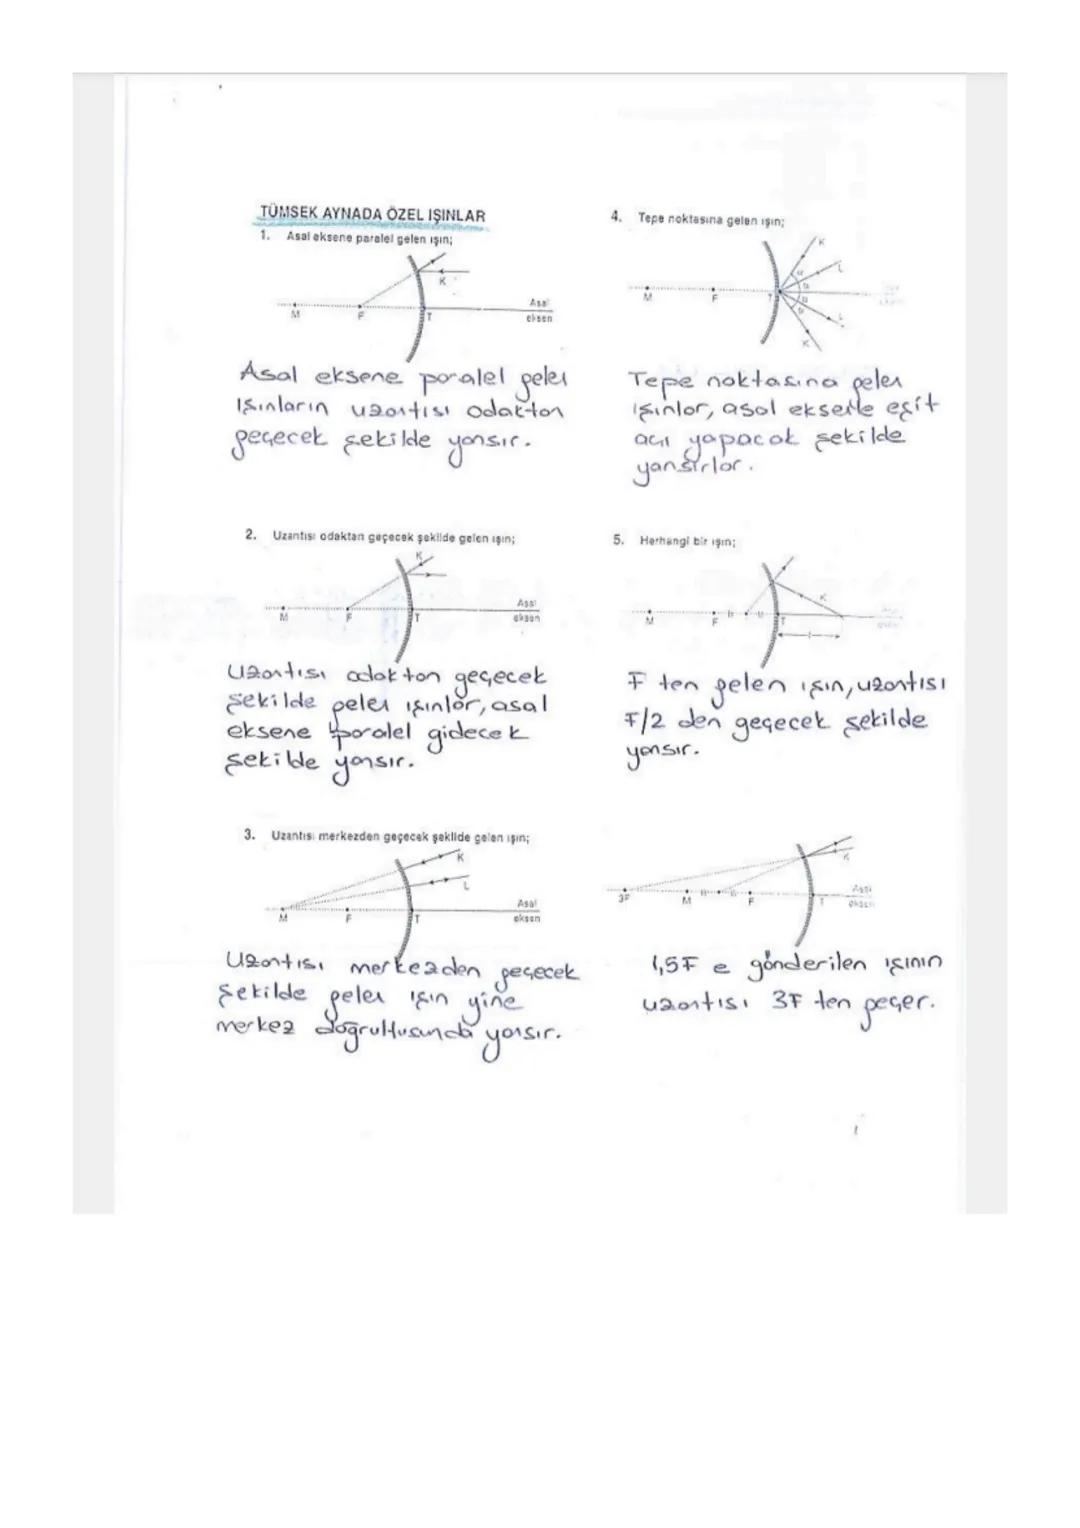 TÜMSEK AYNADA ÖZEL IŞINLAR
1. Asal eksene paralel gelen ışın;
K
M F T Asal
eksen
Asal eksene paralel gelen
Işınların uzantısı odaktan
geçecek şekilde yansır.
2. Uzantısı odaktan geçecek şekilde gelen ışın;
K
M F T Asal
eksen
Uzantısı odaktan geçecek
şekilde gelen ışınlar, asal
eksene paralel gidecek
şekilde yansır.
3. Uzantısı merkezden geçecek şekilde gelen ışın;
K
L
M F T Asal
eksen
Uzantısı merkezden geçecek
şekilde gelen ışın yine
merkez doğrultusunda yansır.
4. Tepe noktasına gelen ışın;
K
L
M F T
L
K
Tepe noktasına gelen
ışınlar, asal eksenle eşit
açı yapacak şekilde
yansırlar.
5. Herhangi bir ışın;
K
M F T
F ten gelen ışın, uzantısı
F/2 den geçecek şekilde
yansır.
K
3F M F T Asal
eksen
1,5F e gönderilen ışının
uzantısı 3F ten geçer.